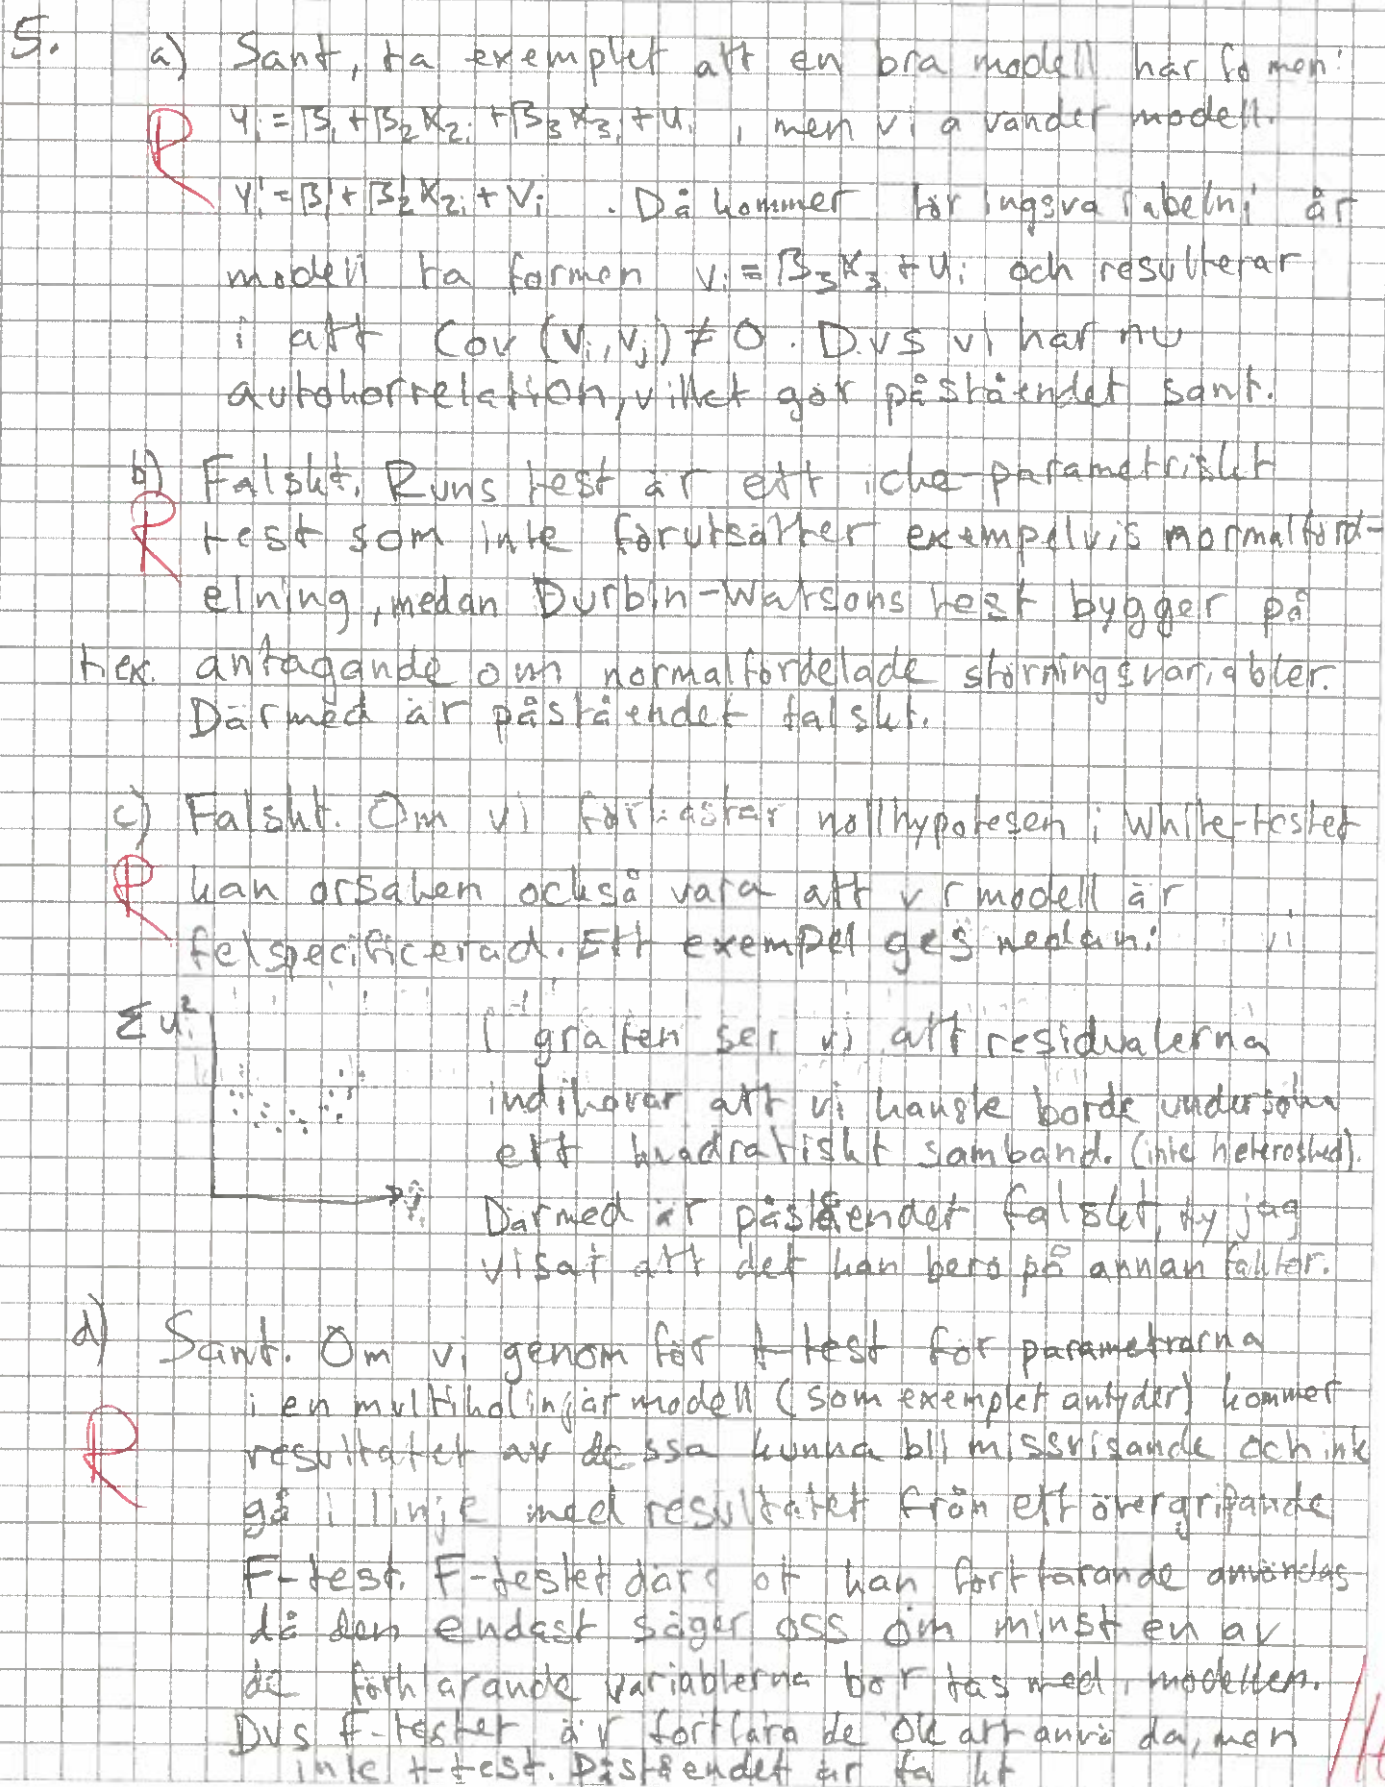 5. a) Sant, ta exemplet att en bra modell har fo men:
R Yi = β1 + β2X2i + β3X3i + ui, men vi a vänder modell.
Yi = β1' + β2'X2i + Vi. Då kommer i år
modell ta formen vi = β3X3i + ui och resulterar
i att Cov (vi, vj) ≠ 0. D.v.s vi har nu
autokorrelation, vilket gör påståendet sant.
b) Falskt. Runs test är ett icke-parametriskt
R test som inte förutsätter exempelvis normalförd-
elning, medan Durbin-Watsons test bygger på
t.ex. antagande om normalfördelade störningsvariabler.
Därmed är påståendet falskt.
c) Falskt. Om vi förkastar nollhypotesen i White-testet
R kan orsaken också vara att v r modell är
felspecificerad. Ett exempel ges nedan:
Σui² I grafen ser vi att residualerna
indikerar att vi kanske borde undersöka
ett kvadratiskt samband. (inte heterosked).
ŷi Därmed är påståendet falskt, ty jag
visat att det kan bero på annan faktor.
d) Sant. Om vi genomför t-test för parametrarna
i en multikolinjär modell (som exemplet antyder) kommer
R resultatet av dessa kunna bli missvisande och inte
gå i linje med resultatet från ett övergripande
F-test. F-testet där ot kan fortfarande användas
då den endast säger oss om minst en av
de förklarande variablerna bör tas med i modellen.
Dvs F-testet är fortfara de ok att anvä da, men
inte t-test. Påståendet är